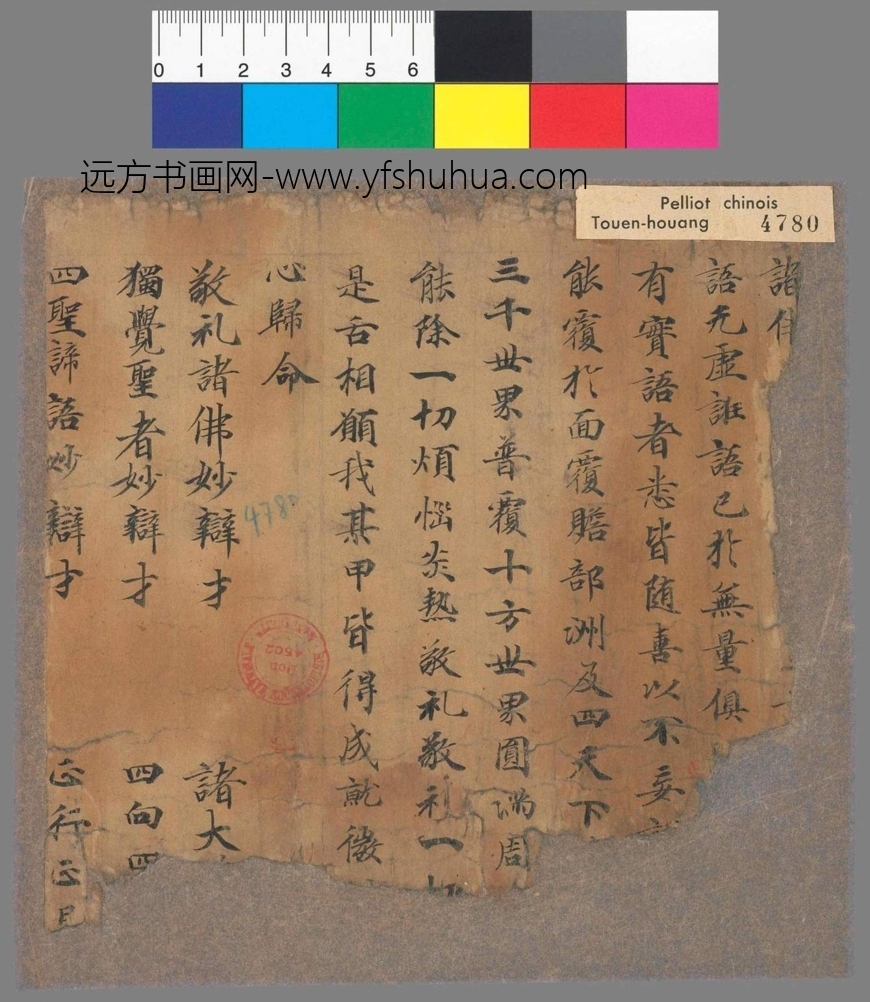 0 1 2 3 4 5 6
远方书画网-www.yfshuhua.com
Pelliot chinois
Touen-houang 4780
諸
語无虛誑語已於無量俱
有實語者悉皆随喜以不妄
能覆於面覆贍部洲及四天下
三千世界普覆十方世界圓滿周
能除一切煩惱炎熱敬礼敬礼一切
是舌相願我某甲皆得成就微
心歸命
敬礼諸佛妙辯才 諸大
獨覺聖者妙辯才 四向四
四聖諦語妙辯才 正行正見
4780